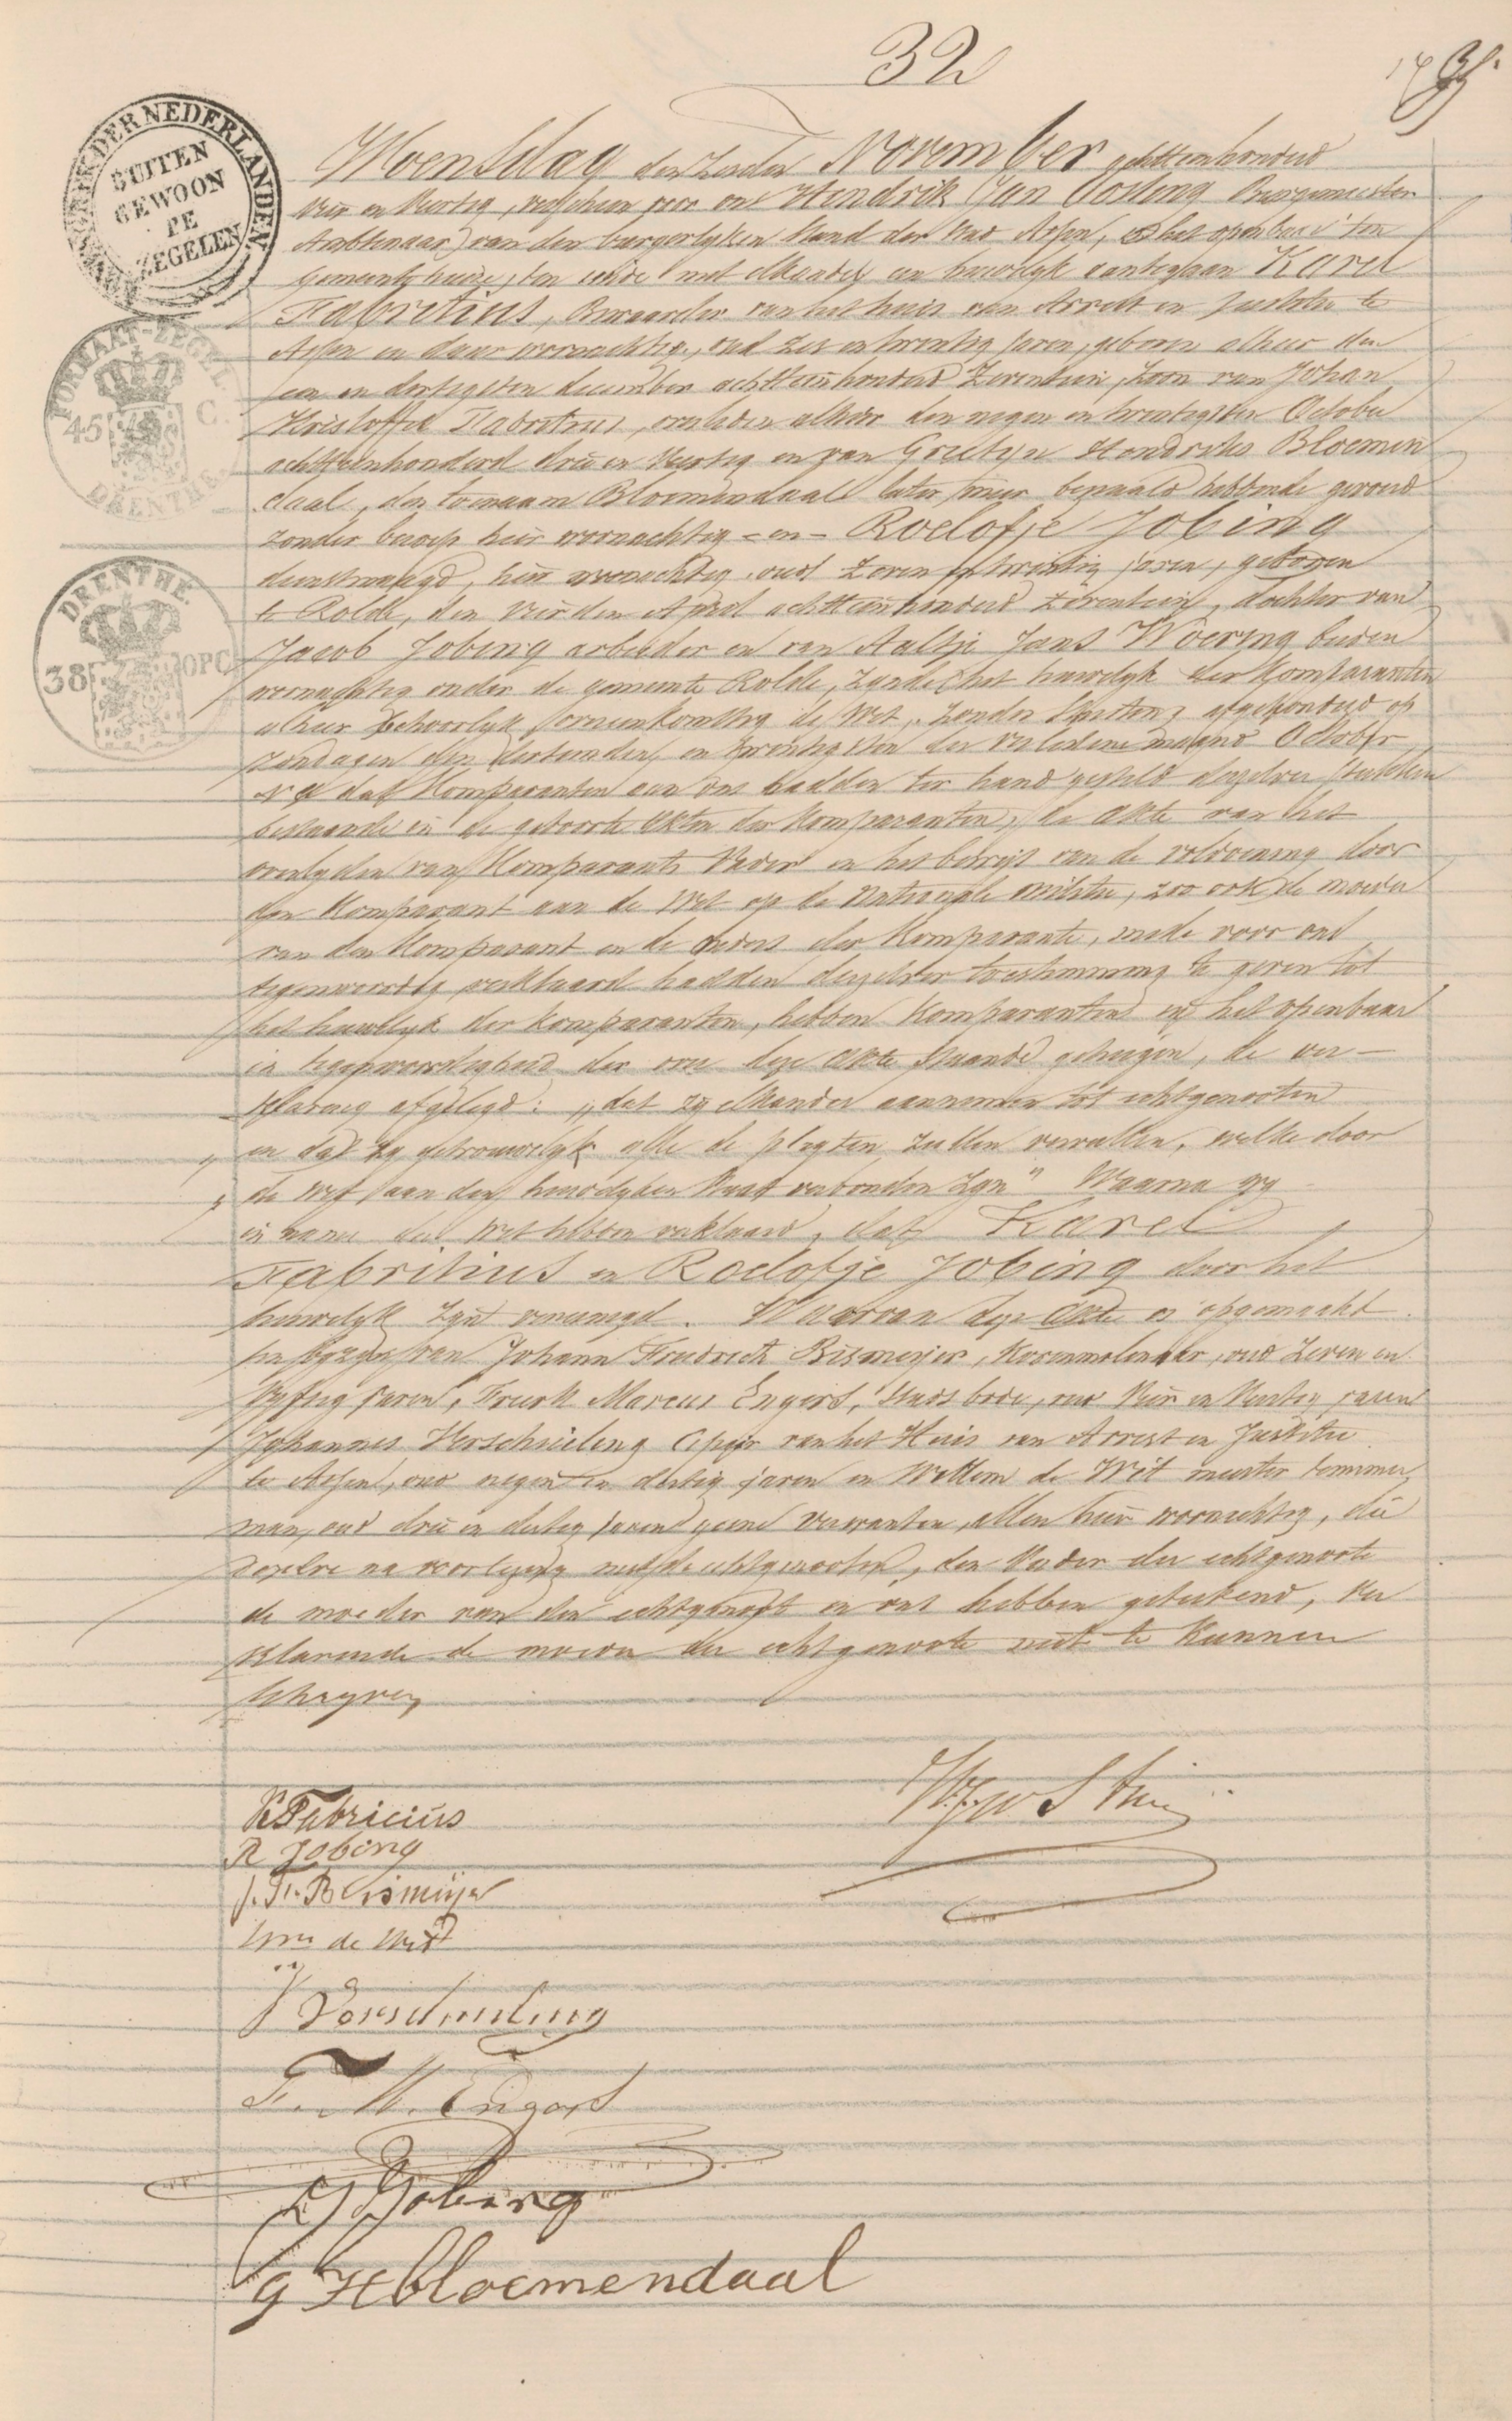 32
KONINGRIJK DER NEDERLANDEN
BUITEN
GEWOON
TE
ZEGELEN
FORMAAT-ZEGEL
45 C.
DRENTHE
DRENTHE
38 OPC
Woensdag den zesden November achttienhonderd
vier en veertig, verscheen voor ons Hendrik Jan Oosting Burgemeester
Ambtenaar van den burgerlyken stand der stad Assen, in het openbaar ten
Gemeentehuize, ten einde met elkander een huwelyk aantegaan Karel
Fabritius, Bewaarder van het huis van Arrest en Justitie te
Assen en daar woonachtig, oud zes en twintig jaren, geboren alhier den
een en dertigsten december achttienhonderd zeventien, zoon van Johan
Kristoffel Fabritius, overleden alhier den negen en twintigsten October
achttienhonderd drie en veertig en van Grietje Hendriks Bloemen
daal, den toenaam Bloemendaal later meer bepaald hebbende gevoerd
zonder beroep hier woonachtig - en - Roelofje Jobing
dienstmaagd, hier woonachtig, oud zeven en twintig jaren, geboren
te Rolde, den vierden April achttienhonderd zeventien, dochter van
Jacob Jobing arbeider en van Aaltje Jans Woering beiden
woonachtig onder de gemeente Rolde, zynde het huwelyk der Komparanten
alhier behoorlyk overeenkomstig de Wet, zonder stuiting afgekondigd op
zondagen den dertienden en twintigsten der verledene maand October
dat Komparanten aan ons hadden ter hand gesteld derzelver stukken
bestaande in de geboorte akten der Komparanten, de akte van het
overlyden van Komparants Vader en het bewys van de voldoening door
den Komparant aan de Wet op de Nationale militie, zoo ook de moeder
van den Komparant en de ouders der Komparante, mede voor ons
tegenwoordig verklaard hadden derzelver toestemming te geven tot
het huwelyk der komparanten, hebben Komparanten in het openbaar
in tegenwoordigheid der in deze akte staande getuigen, de ver-
klaring afgelegd: „dat zy elkander aannemen tot echtgenooten
„ en dat zy getrouwelyk alle de plegten zullen vervullen, welke door
„ de wet aan den huwelyken staat verbonden zyn" Waarna wy
in naam der Wet hebben verklaard, dat Karel
Fabritius en Roelofje Jobing door het
huwelyk zyn vereenigd. Waarvan deze akte is opgemaakt
ten byzyn van Johann Friedrich Bismeijer, Korenmolenaar, oud zeven en
vyftig jaren, Freerk Marcus Engers, Stads bode, oud vier en veertig jaren
Johannes Verschuieling Cipier van het Huis van Arrest en Justitie
te Assen, oud negen en dertig jaren en Willem de Wit meester timmer
man, oud drie en dertig jaren geene verwanten, allen hier woonachtig, die
dezelve na voorlezing met de echtgenooten, den Vader der echtgenoote
de moeder van den echtgenoot en ons hebben geteekend, ver
klarende de moeder der echtgenoote niet te kunnen
schryven
K Fabricius
R Jobing
J. F. Bismeijer
Wm de Wit
J Verschuieling
F. M. Engers
J Jobing
G H bloemendaal